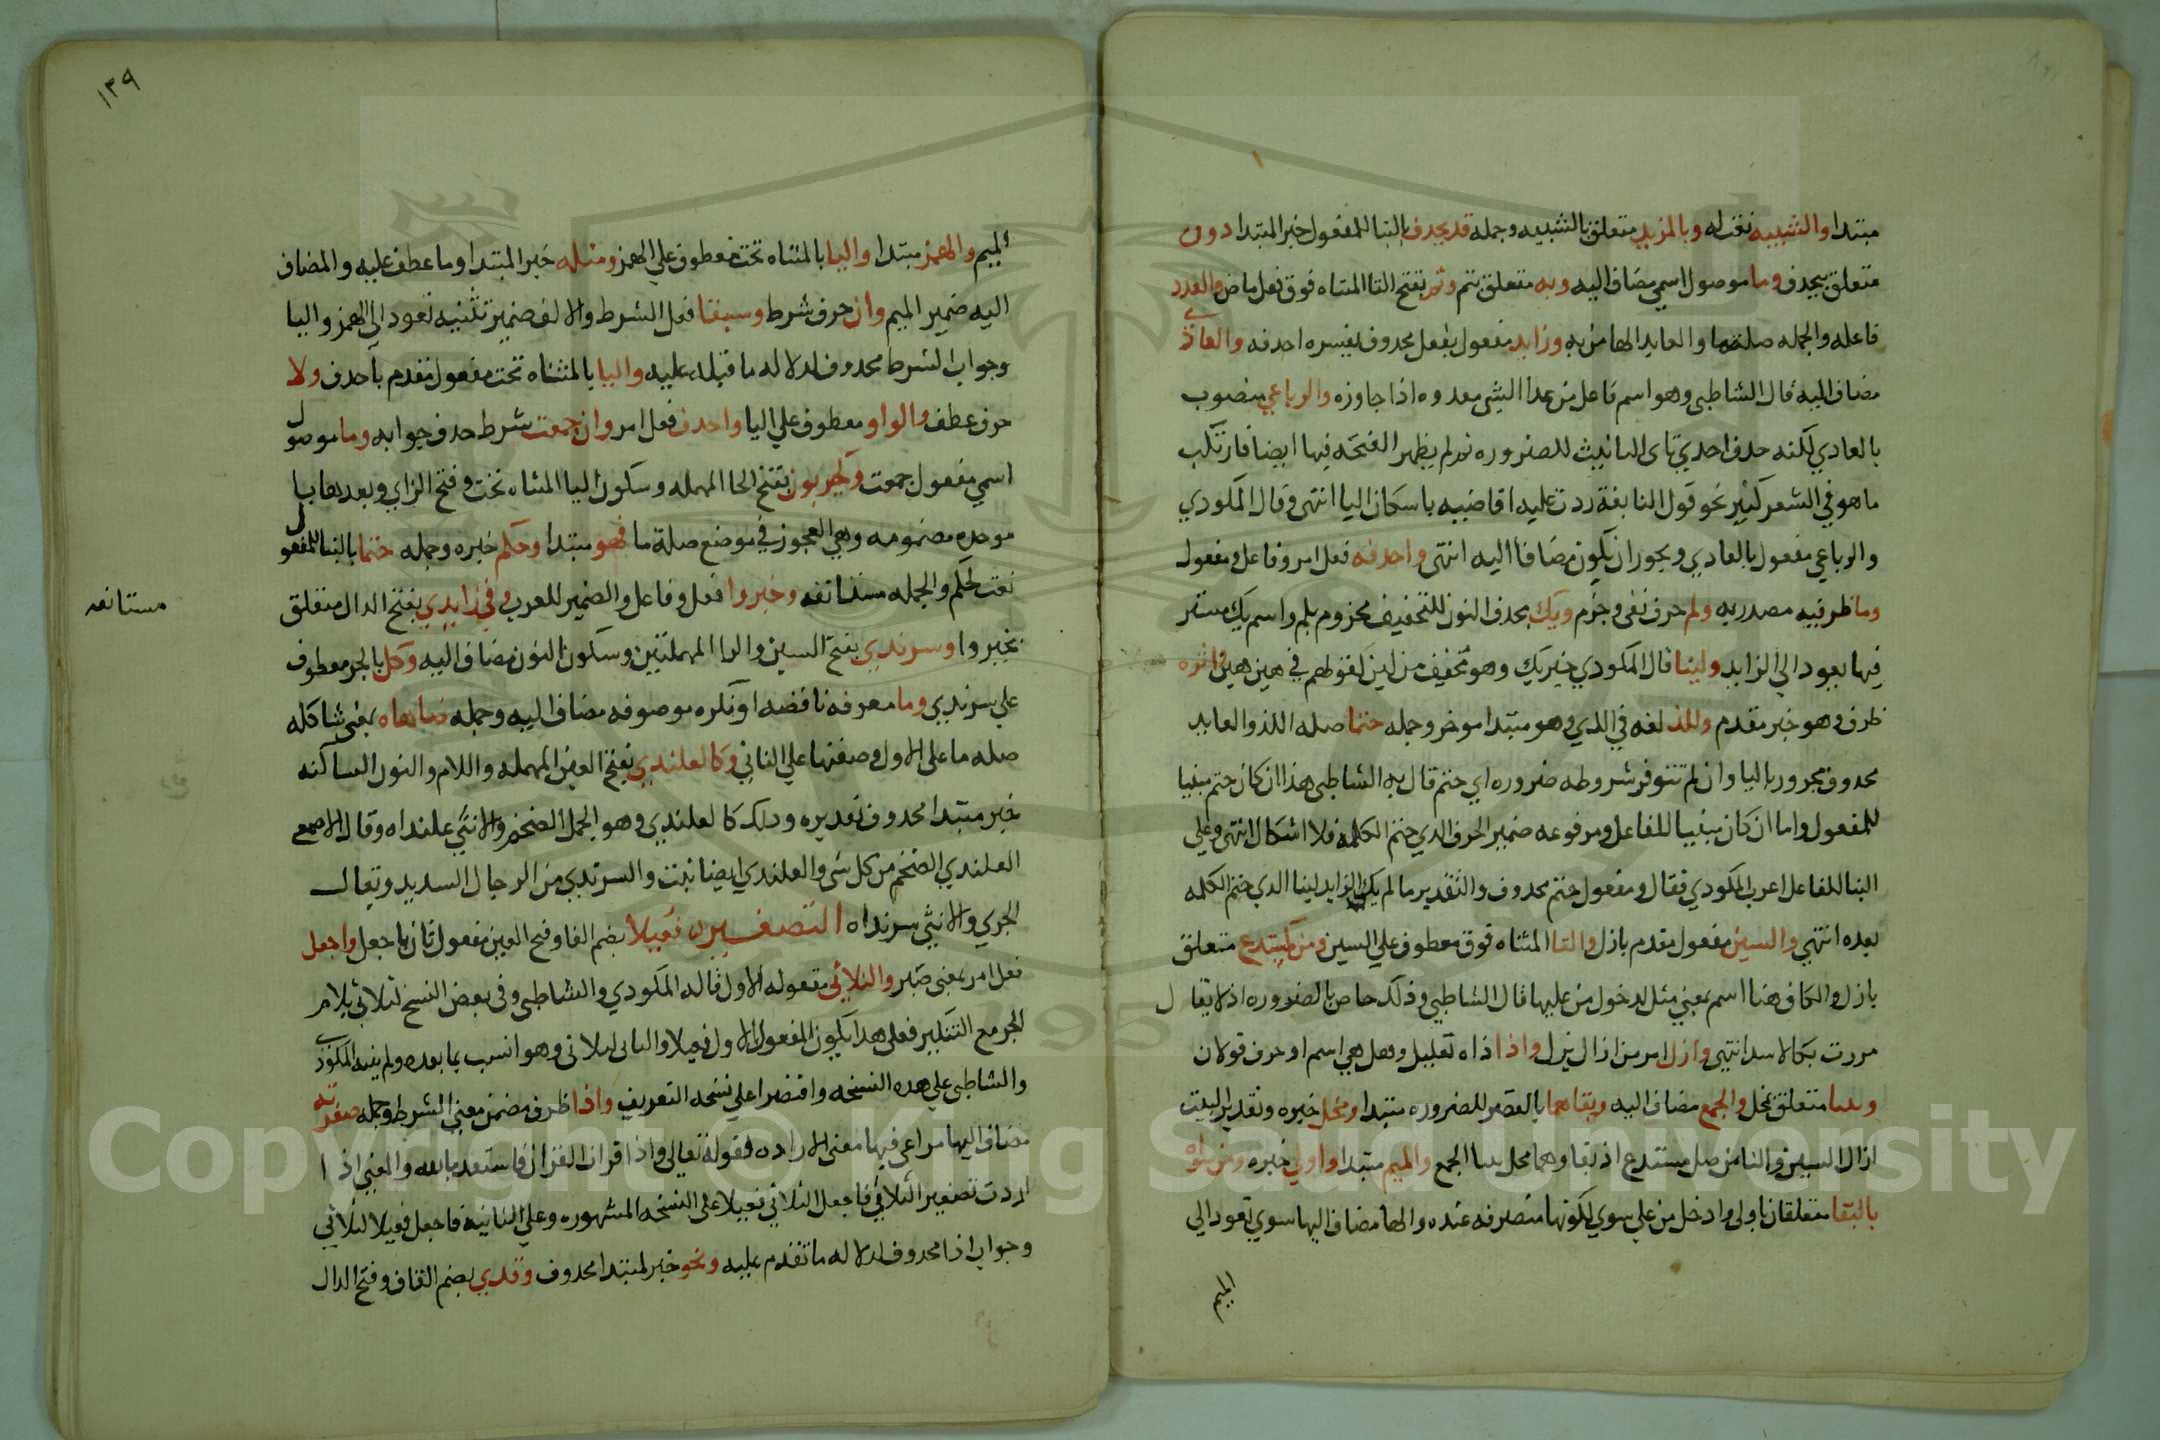 مبتدا والشبيه نعت له وبالمزيد متعلق بالشبيه وجمله قد يحذف بالبنا للمفعول خبر المبتدا دون
متعلق بيحذف وما موصول اسمي مضاف اليه وبه متعلق بتم وتم بفتح التا المثناه فوق فعل ماض والعدد
فاعله والجمله صلة ما والعايد الها من به وزايد مفعول بفعل محذوف يفسره احذفه والعادي
مضاف اليه قال الشاطبي وهو اسم فاعل من عدا الشي يعدوه اذا جاوزه والرباعي منصوب
بالعادي لكنه حذف احدي ياى للضروره ثم لم يظهر الفتحه فيها ايضا فارتكب
ما هو في الشعر كثير نحو قول النابغة ردت عليه اقاصيه باسكان اليا انتهى وقال المكودي
والرباعي مفعول بالعادي ويجوز ان يكون مضافا اليه انتهى واحذفه فعل امر وفاعل ومفعول
وما ظرفيه مصدريه ولم حرف نفي وجزم ويك بحذف النون للتخفيف مجزوم بلم واسم يك مستتر
فيها يعود الي الزايد ولينا قال المكودي خبر يك وهو مخفف من لين كقولهم في هين هين اثره
ظرف وهو خبر مقدم واللذ لغه في الذي وهو مبتدا موخر وجمله ختما صله اللذ والعايد
محذوف مجرور باليا وان لم تتوفر شروطه ضروره اي ختم قال به الشاطبي هذا ان كان ختم مبنيا
للمفعول واما ان كان مبنيا للفاعل ومرفوعه ضمير الحرف الذي ختم الكلمه فلا اشكال انتهى وعلي
البنا للفاعل اعرب المكودي فقال ومفعول ختم محذوف والتقدير ما لم يك الزايد لينا الذي ختم الكلمه
بعده انتهي والسين مفعول مقدم بازل والتا المثناه فوق معطوف علي السين ومن كمستدع متعلق
بازل والكاف هنا اسم بمعني مثل لدخول من عليها قال الشاطبي وذلك خاص بالضروره اذ لا يقال
مررت بكالاسد انتهي وازل امر من ازال يزيل واذا ذاه تعليل وهل هي اسم او حرف قولان
وببنا متعلق بمخل والجمع مضاف اليه وبقاهما بالقصر للضروره مبتدا ومخل خبره وتقدير البيت
ازال السين والتا من مثل مستدع اذ بقاوهما مخل ببنا الجمع والميم مبتدا واولي خبره ومن سواه
بالبقا متعلقان باولى وادخل من علي سوي لكونها متصرفه عنده والها مضاف اليها سوي تعود الي
الميم
١٣٩
الميم والهمز مبتدا واليا بالمثناه تحت معطوف علي الهمز ومثله خبر المبتدا وما عطف عليه والمضاف
اليه ضمير الميم وان حرف شرط وسبقا فعل الشرط والالف ضمير تثنيه تعود الي الهمز واليا
وجواب الشرط محذوف لدلاله ما قبله عليه واليا بالمثناه تحت مفعول مقدم باحذف ولا
حرف عطف والواو معطوف علي اليا واحذف فعل امر وان جمعت شرط حذف جوابه وما موصول
اسمي مفعول جمعت وكحيزبون بفتح الحا المهمله وسكون اليا المثناه تحت وفتح الزاي وبعدها با
موحده مضمومه وهي العجوز في موضع صلة ما فهو مبتدا وحكم خبره وجمله حتما بالبنا للمفعول
نعت لحكم والجمله مستانفه وخيروا فعل وفاعل والضمير للعرب وفي زايدي بفتح الدال متعلق
مستانفه
بخيروا وسرندي بفتح السين والرا المهملتين وسكون النون مضاف اليه وكل بالجر معطوف
علي سرندي وما معرفه ناقصه او نكره موصوفه مضاف اليه وجمله ضاهاه بمعني شاكله
صله ما على الاول وصفتها علي الثاني وكالعلندي بفتح العين المهمله واللام والنون الساكنه
خبر مبتدا محذوف تقديره وذلك كالعلندي وهو الجمل الضخم والانثي علنداه وقال الاصمعي
العلندي الضخم من كل شي والعلندي ايضا نبت والسرندي من الرجال الشديد ويقال
الجري والانثي سرنداه التصغير فعيلا بضم الفا وفتح العين مفعول ثان باجعل واجعل
فعل امر بمعني صير والثلاثي مفعوله الاول قاله المكودي والشاطبي وفي بعض النسخ لثلاثي بلام
الجر مع التنكير فعلي هذا يكون المفعول الاول فعيلا والثاني لثلاثي وهو انسب بما بعده ولم ينبه المكودي
والشاطبي علي هذه النسخه واقتصرا علي نسخه التعريف واذا ظرف مضمن معني الشرط وجمله صغرته
مضاف اليها مراعي فيها معني الاراده كقوله تعالي واذا قرات القران فاستعذ بالله والمعني اذا
اردت تصغير الثلاثي فاجعل الثلاثي فعيلا على النسخه المشهوره وعلي الثانيه فاجعل فعيلا لثلاثي
وجواب اذا محذوف لدلاله ما تقدم عليه ونحو خبر لمبتدا محذوف وقذي بضم القاف وفتح الذال
Copyright © King Saud University